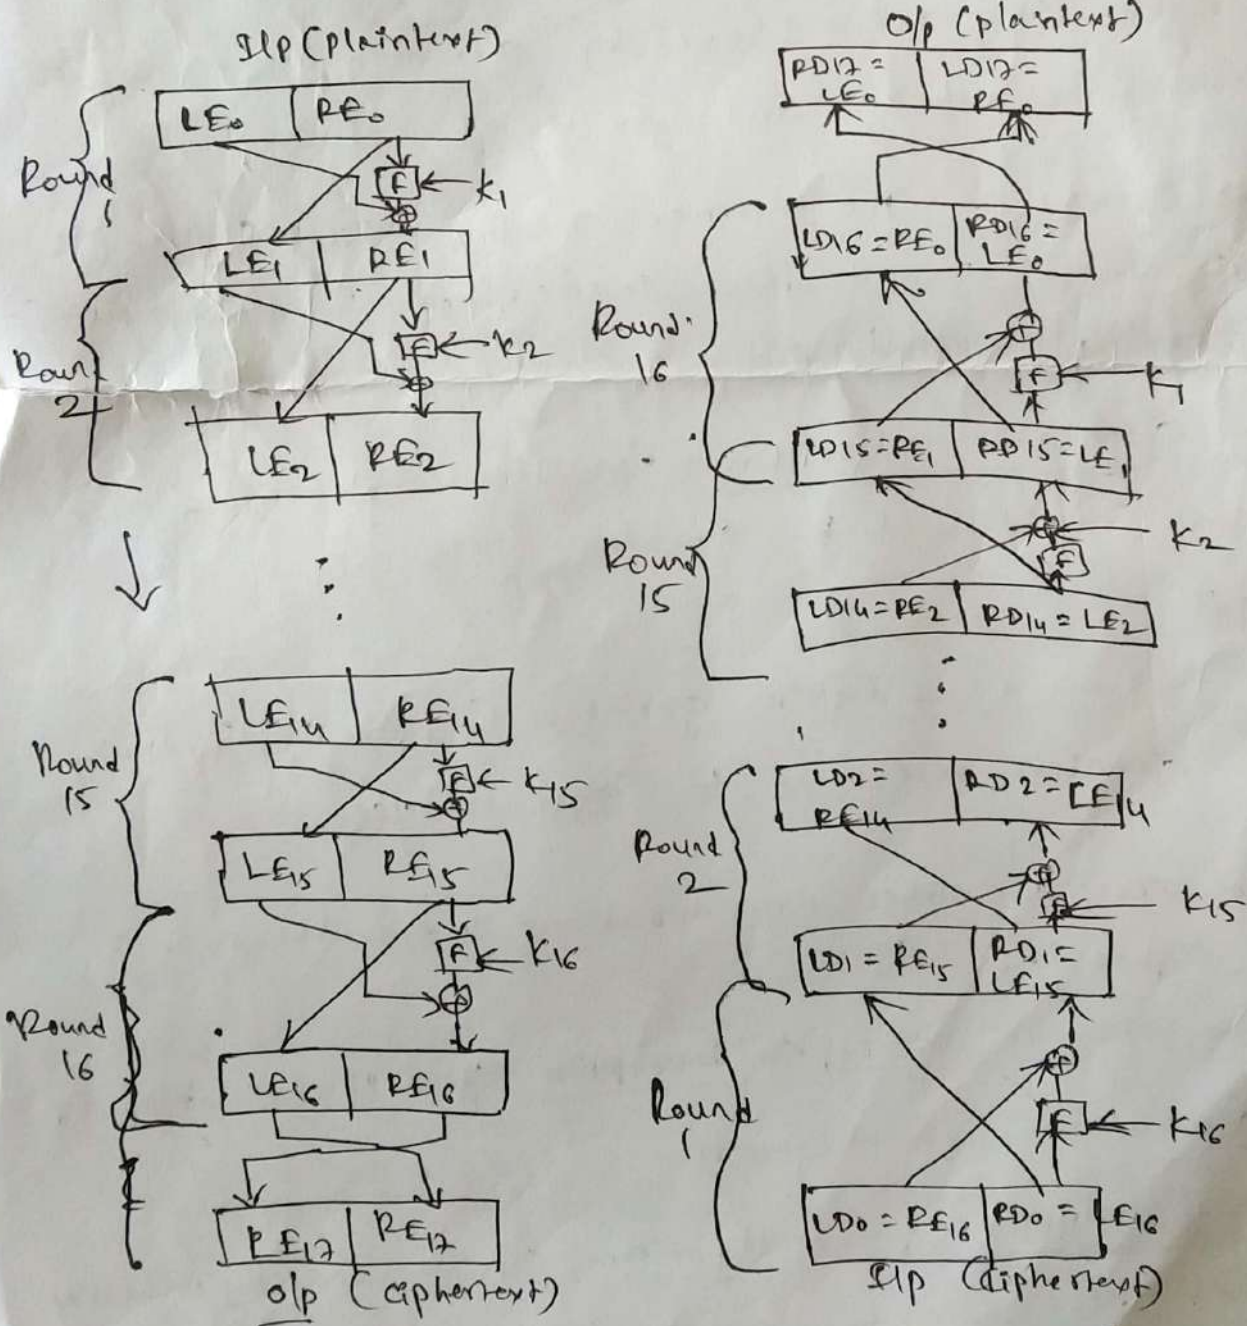 I/p (plaintext)
LE0 RE0
Round
1
F
K1
LE1 RE1
F
K2
Roun
2
LE2 RE2
LE14 RE14
Round
15
F
K15
LE15 RE15
F
K16
Round
16
LE16 RE16
RE17 RE17
o/p (ciphertext)
O/p (plaintext)
RD17 = LD17 =
LE0 RE0
LD16 = RE0 RD16 =
LE0
Round
16
F
K1
LD15 = RE1 RD15 = LE1
K2
F
Round
15
LD14 = RE2 RD14 = LE2
LD2 = RD2 = LE14
RE14
Round
2
F
K15
LD1 = RE15 RD1 =
LE15
Round
1
F
K16
LD0 = RE16 RD0 = LE16
I/p (ciphertext)